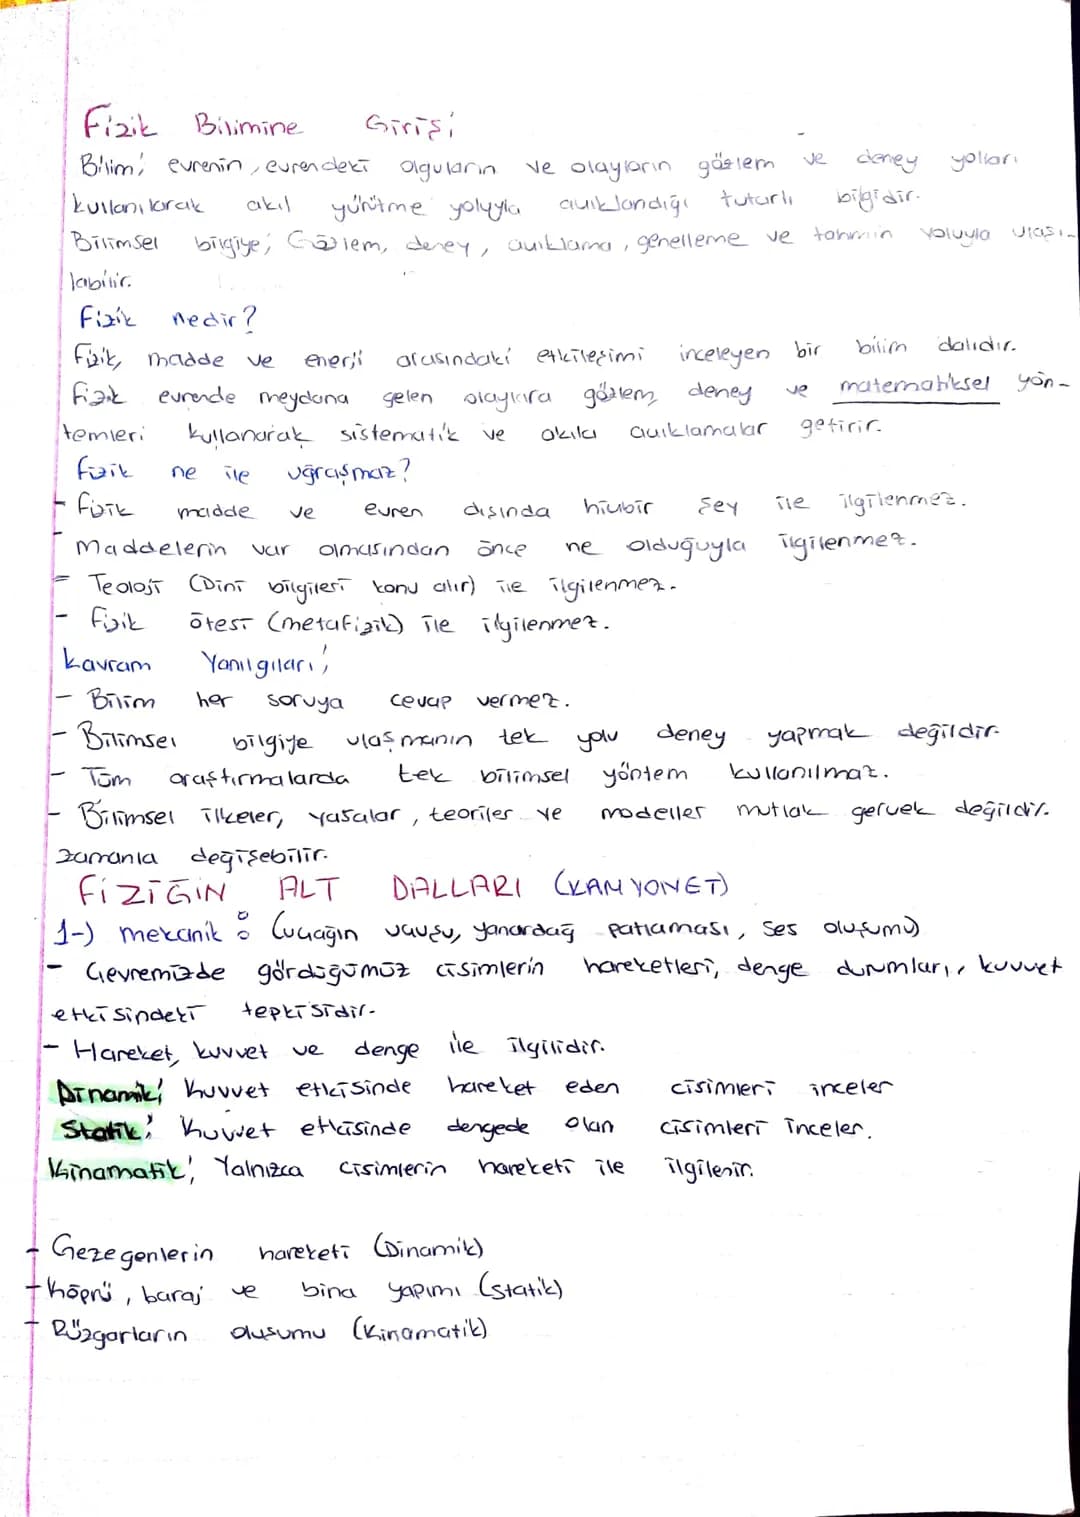 Fizik Bilimine Giriş;
Bilim; evrenin, evrendeki olguların ve olayların gözlem ve deney yolları
kullanılarak akıl yürütme yoluyla açıklandığı tutarlı bilgidir.
Bilimsel bilgiye; Gözlem, deney, açıklama, genelleme ve tahmin yoluyla ulaşı-
labilir.
Fizik nedir?
Fizik, madde ve enerji arasındaki etkileşimi inceleyen bir bilim dalıdır.
Fizik evrende meydana gelen olaylara gözlem, deney ve matematiksel yön-
temleri kullanarak sistematik ve akılcı açıklamalar getirir.
Fizik ne ile uğraşmaz?
- Fizik madde ve evren dışında hiçbir şey ile ilgilenmez.
- Maddelerin var olmasından önce ne olduğuyla ilgilenmez.
- Teoloji (Dini bilgileri konu alır) ile ilgilenmez.
- Fizik ötesi (metafizik) ile ilgilenmez.
Kavram Yanılgıları;
- Bilim her soruya cevap vermez.
- Bilimsel bilgiye ulaşmanın tek yolu deney yapmak değildir.
- Tüm araştırmalarda tek bilimsel yöntem kullanılmaz.
- Bilimsel ilkeler, yasalar, teoriler ve modeller mutlak gerçek değildir.
zamanla değişebilir.
FİZİĞİN ALT DALLARI (KAMYONET)
1-) mekanik: (uçağın uçuşu, yanardağ patlaması, ses oluşumu)
- Çevremizde gördüğümüz cisimlerin hareketleri, denge durumları, kuvvet
etkisindeki tepkisidir.
- Hareket, kuvvet ve denge ile ilgilidir.
Dinamik; Kuvvet etkisinde hareket eden cisimleri inceler
Statik; Kuvvet etkisinde dengede olan cisimleri inceler.
Kinamatik; Yalnızca cisimlerin hareketi ile ilgilenir.
- Gezegenlerin hareketi (Dinamik)
- Köprü, baraj ve bina yapımı (Statik)
- Rüzgarların oluşumu (Kinamatik)